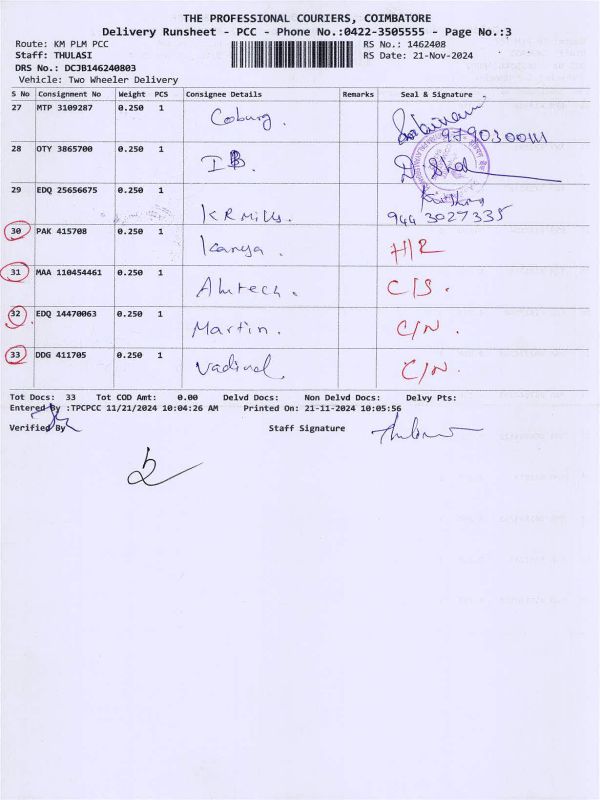 THE PROFESSIONAL COURIERS, COIMBATORE
Delivery Runsheet - PCC - Phone No.:0422-3505555 - Page No.:3
Route: KM PLM PCC RS No.: 1462408
Staff: THULASI RS Date: 21-Nov-2024
DRS No.: DCJB146240803
Vehicle: Two Wheeler Delivery
S No Consignment No Weight PCS Consignee Details Remarks Seal & Signature
27 MTP 3109287 0.250 1 Coburg. 9790300111
28 OTY 3865700 0.250 1 IB
29 EDQ 25656675 0.250 1 KR Mills. 944 3027335
30 PAK 415708 0.250 1 Kanya. H/R
31 MAA 110454461 0.250 1 C/S.
32 EDQ 14470063 0.250 1 Martin. C/N.
33 DDG 411705 0.250 1 C/N.
Tot Docs: 33 Tot COD Amt: 0.00 Delvd Docs: Non Delvd Docs: Delvy Pts:
Entered By :TPCPCC 11/21/2024 10:04:26 AM Printed On: 21-11-2024 10:05:56
Verified By Staff Signature